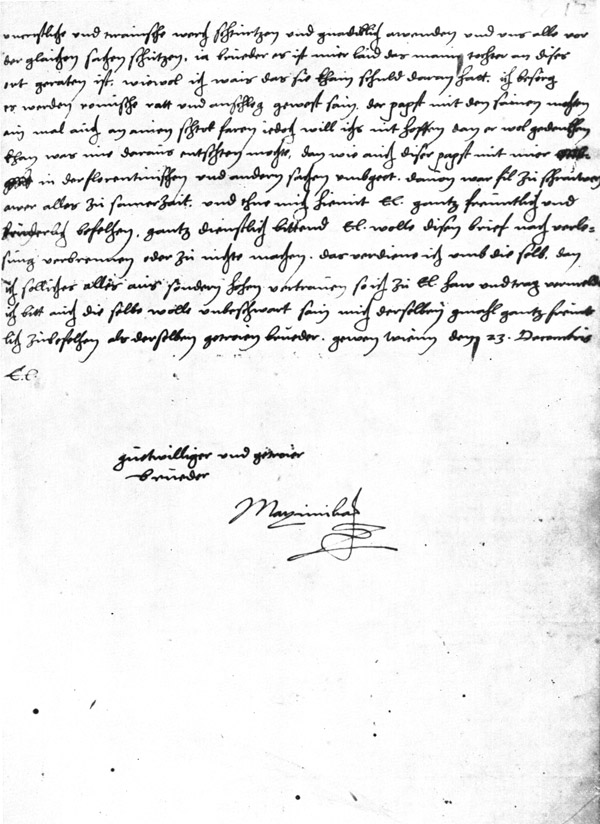 uncristliche und tirannische werch schürtzen und gnediklich wenden und uns alle vor
der gleichen sachen schützen. ia brueder es ist mier laid das main tochter an dises
ort geraten ist. wiewol ich wais das sie khain schuld daran hatt. ich besorg
es werden römische ratt und anschleg gewest sain. der papst mit den seinen mechten
ain mal auch an ainen schrok faren iedoch will ichs nit hoffen dan er wol gedenkhen
khan was ime daraus entsteen mechte. dan wie auch diser papst mit mier
in der florentinischen und andern sachen umbgeet. davon war fil zu schraiwen
awer alles zu seinerzait. und thue mich hiemit El. gantz freuntlich und
bruederlich befelhen, gantz dienstlich bittend El. wolle disen brief nach verle-
sung verbrennen oder zu nichte machen. das verdiene ich umb die selb. dan
ich solliches alles aus sondern hohen vertrauen so ich zu El haw und trag vermeldt
ich bitt auch die selbe wolle unbeschwart sain mich derselben gmahl gantz freunt
lich zubefelhen als derselben getraien brueder. gewen wienn den 23. Decembris
El.
guetwilliger und getraier
brueder
Maximilian